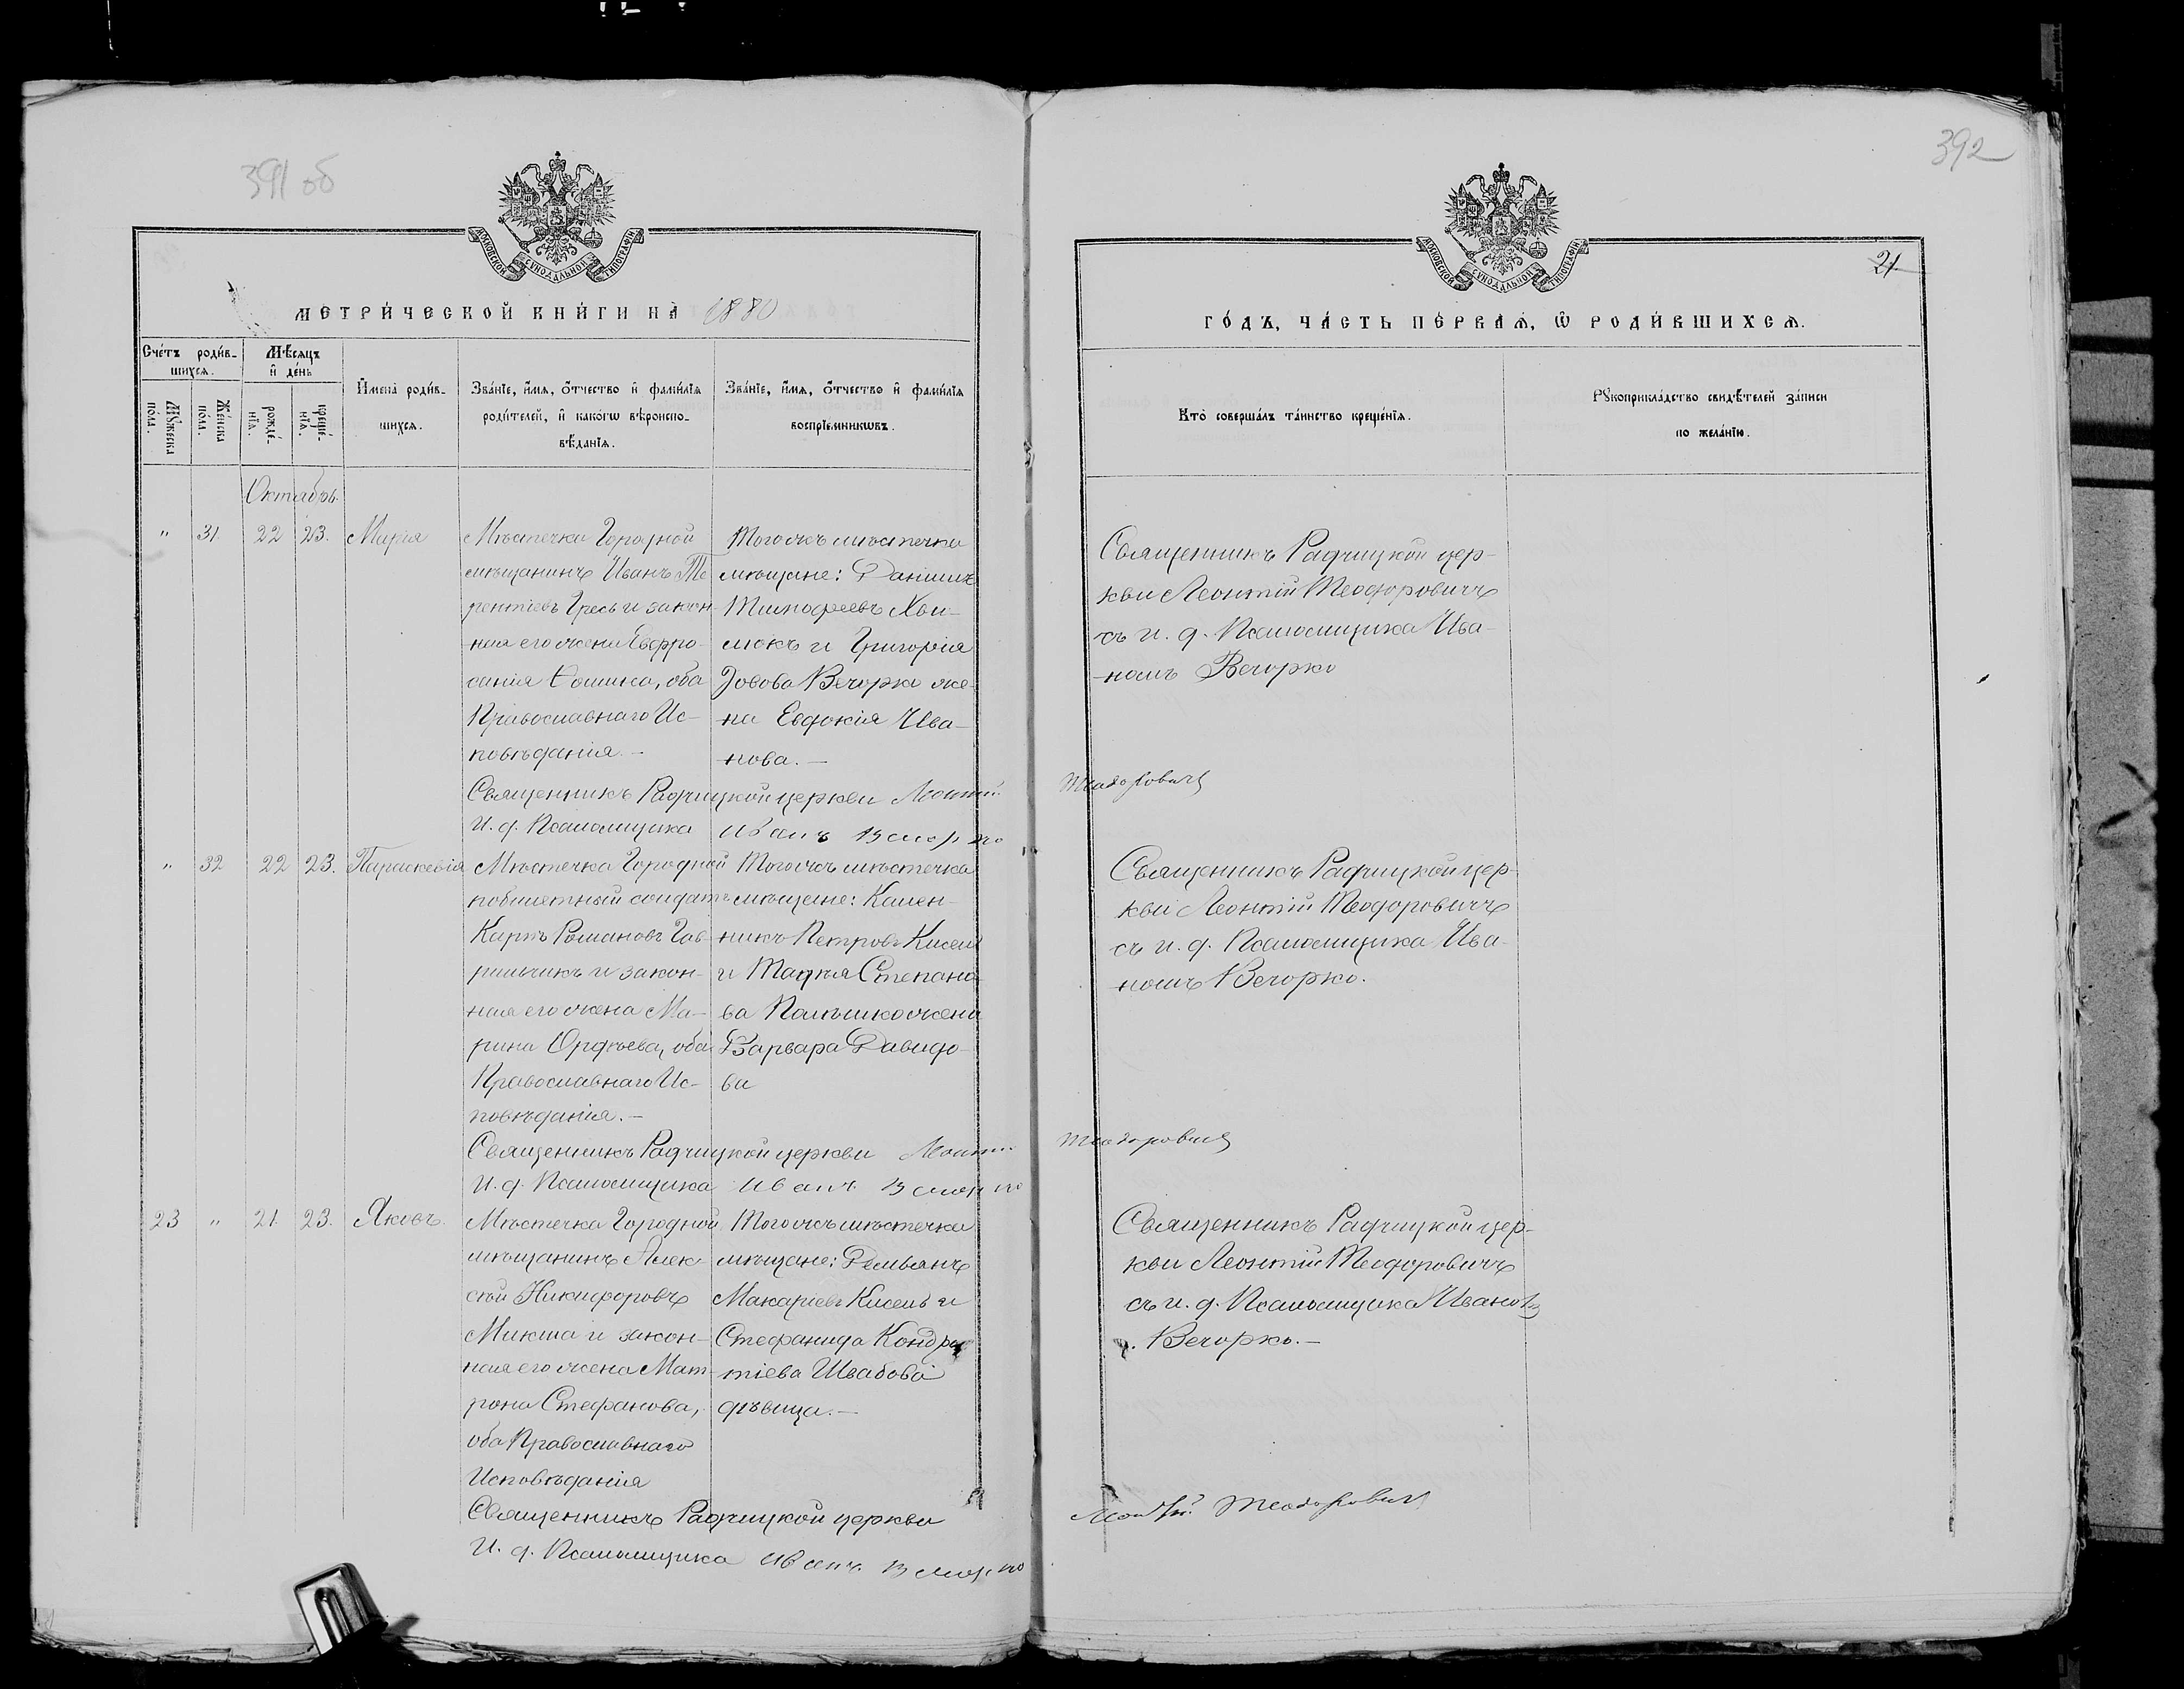 391 об
МОСКОВСКОЙ СѴНОДАЛЬНОЙ ТИПОГРАФІИ
МЕТРИ́ЧЕСКОЙ КНИ́ГИ НА 1880
Сче́тъ роди́в-
шихсѧ.
Мѣ́сяцъ
и҆ де́нь
Мꙋ́жеска
по́ла.
Же́нска
по́ла.
рожде́-
нїѧ.
креще́-
нїѧ.
И҆мена̀ роди́в-
шихсѧ.
Зва́нїе, и҆́мѧ, ѻ҆́тчество и҆ фами́лїѧ
роди́телей, и҆ како́гѡ вѣроиспо-
вѣ́данїѧ.
Зва́нїе, и҆́мѧ, ѻ҆́тчество и҆ фами́лїѧ
воспрїе́мникѡвъ.
Октябрь.
" 31. 22 23. Марія
Мѣстечка Городной
мѣщанинъ Иванъ Те
рентіевъ Гресь и закон-
ная его жена Евфро-
синія Фомина, оба
Православнаго Ис-
повѣданія.—
Того жъ мѣстечка
мѣщане: Даніилъ
Тимофеевъ Хви-
мокъ и Григорія
Іовова Вечорко же-
на Евдокія Ива-
нова.—
Священникъ Радчицкой церкви Леонтій
И. д. Псаломщика Иванъ Вечорко
" 32 22 23. Параскевія
Мѣстечка Городной
побилетный солдатъ
Карпъ Романовъ Гав-
рильчикъ и закон-
ная его жена Ма-
рина Орфѣева, оба
Православнаго Ис-
повѣданія.—
Того жъ мѣстечка
мѣщане: Калин-
никъ Петровъ Кисель
Варвара Давидо-
ва
Священникъ Радчицкой церкви Леонтій
И. д. Псаломщика Иванъ Вечорко
23 " 21. 23. Яковъ.
Мѣстечка Городной
мѣщанинъ Алек
сѣй Никифоровъ
Микша и закон-
ная его жена Мат-
рона Стефанова,
оба Православнаго
Исповѣданія
Того жъ мѣстечка
мѣщане: Демьянъ
Макаріевъ Кисель и
Стефанида Кондра
тіева Швабова
дѣвица.—
Священникъ Радчицкой церкви
И. д. Псаломщика Иванъ Вечорко
392
МОСКОВСКОЙ СѴНОДАЛЬНОЙ ТИПОГРАФІИ
21
ГО́ДЪ, ЧА́СТЬ ПЕ́РВАѦ, Ѽ РОДИ́ВШИХСѦ.
Кто̀ соверша́лъ та́инство креще́нїѧ.
Рꙋкоприкла́дство свидѣ́телей за́писи
по жела́нїю.
Священникъ Радчицкой цер-
кви Леонтій Теодоровичъ
съ и. д. Псаломщика Ива-
номъ Вечорко
Теодоровичъ
Священникъ Радчицкой цер-
кви Леонтій Теодоровичъ
съ и. д. Псаломщика Ива-
номъ Вечорко.
Теодоровичъ
Священникъ Радчицкой цер-
кви Леонтій Теодоровичъ
съ и. д. Псаломщика
Вечорко.—
Леонтій Теодоровичъ